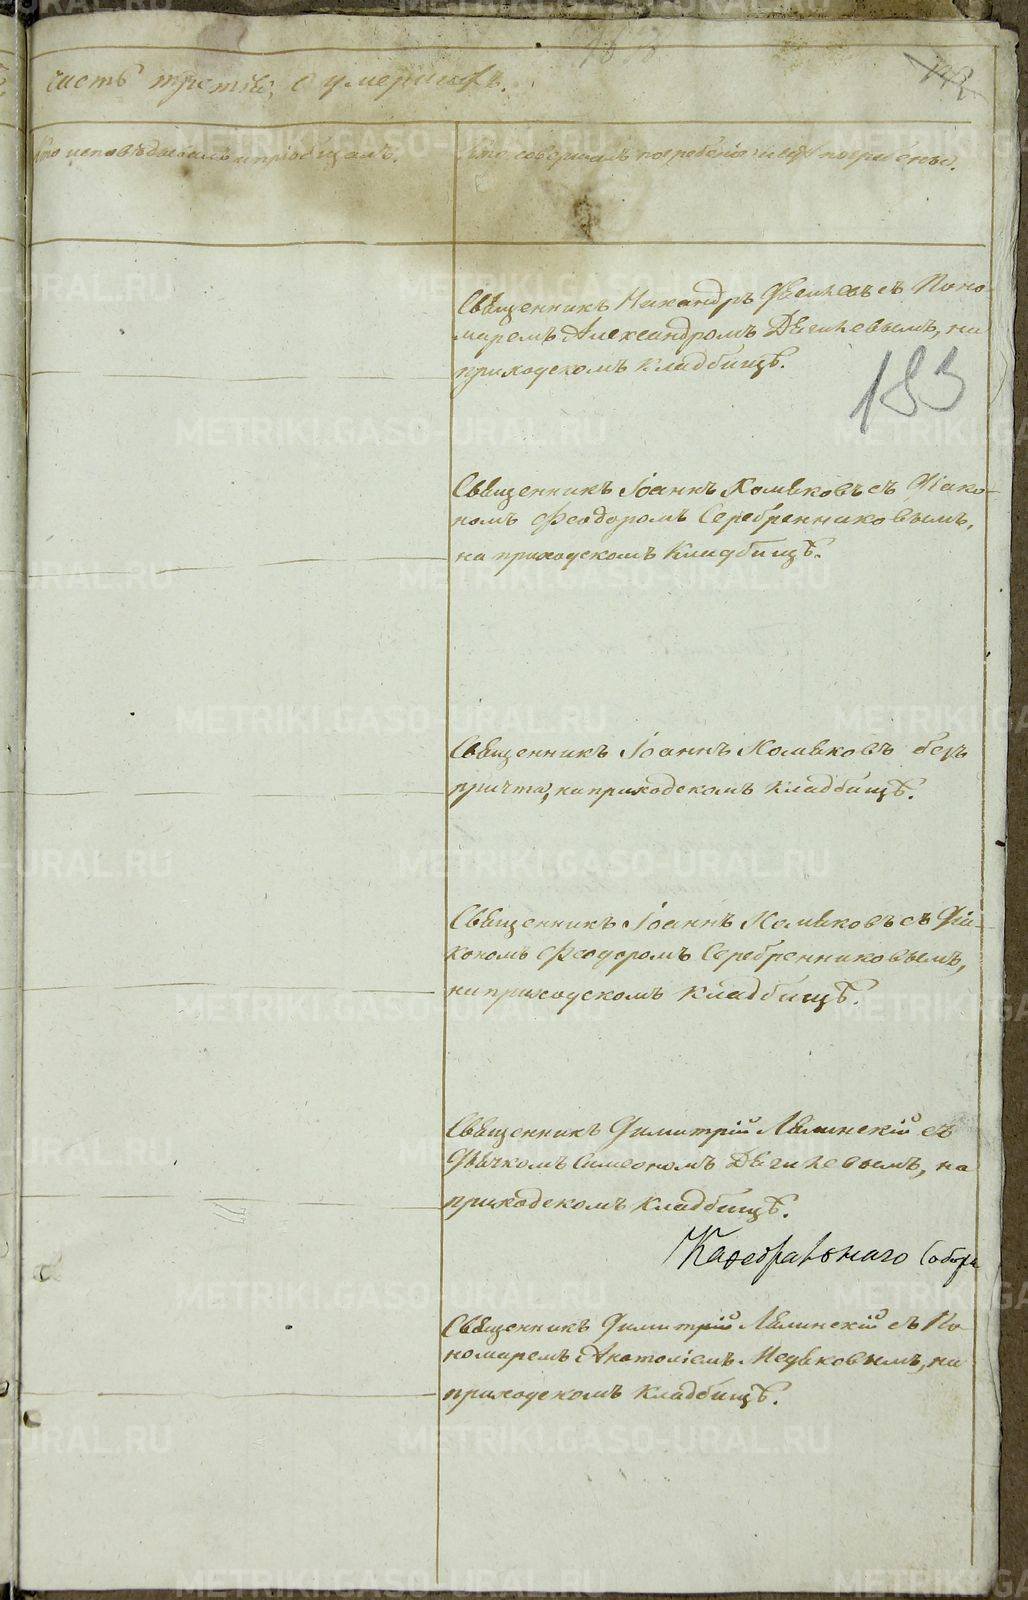 часть третія, о умершихъ.
Кто исповѣдывалъ и пріобщалъ.
Кто совершалъ погребеніе и гдѣ погребены.
Священникъ Никандръ съ Поно-
маремъ Александромъ Дягилевымъ, на
приходскомъ кладбищѣ.
183
Священникъ Іоаннъ Хомяковъ съ Діако-
номъ Феодоромъ Серебренниковымъ,
на приходскомъ кладбищѣ.
Священникъ Іоаннъ Хомяковъ безъ
причта, на приходскомъ кладбищѣ.
Священникъ Іоаннъ Хомяковъ съ Діа-
кономъ Феодоромъ Серебренниковымъ,
на приходскомъ кладбищѣ.
Священникъ Димитрій съ
Дьячкомъ Симеономъ Дягилевымъ, на
приходскомъ кладбищѣ.
Кафедральнаго Собора
Священникъ Димитрій съ По-
номаремъ Анатоліемъ на
приходскомъ кладбищѣ.
METRIKI.GASO-URAL.RU